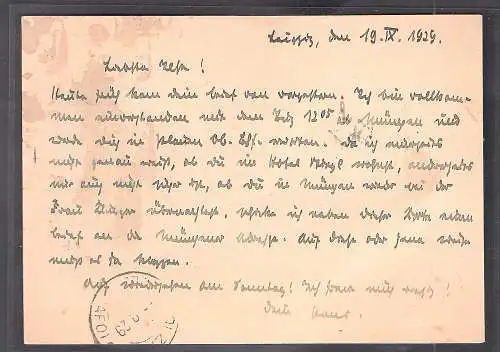 Leipzig, den 19. IX. 1929.
Liebste Ilse!
Heute früh kam dein Brief von vorgestern. Ich bin vollkom-
men einverstanden mit dem Zug 12 05 ab München und
werde dich in Plauen Ob. Bhf. erwarten. Da ich einerseits
nicht genau weiß, ob du im Hotel wohnst, anderseits
mir auch nicht sicher ist, ob du in München wieder bei der
Frau übernachtest, schicke ich neben dieser Karte einen
Brief an die Münchner Adresse. Auf diese oder jene Weise
muß es ja klappen.
Auf Wiedersehen am Sonntag! Ich freue mich sehr!
Dein Hans.